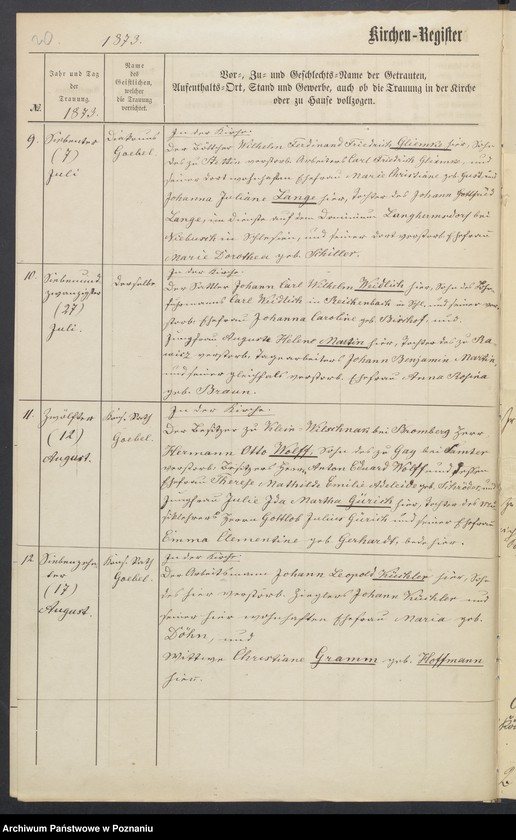 20. 1873.
Kirchen-Register
№
Jahr und Tag
der
Trauung.
1873.
Name
des
Geistlichen,
welcher
die Trauung
verrichtet.
Vor-, Zu- und Geschlechts-Name der Getrauten,
Aufenthalts-Ort, Stand und Gewerbe, auch ob die Trauung in der Kirche
oder zu Hause vollzogen.
9.
Siebenter
(7)
Juli
Goebel.
In der Kirche.
Der Böttcher Wilhelm Ferdinand Friedrich Glienke hier, Sohn
des zu Stettin verstorb. Arbeiters Carl Friedrich Glienke, und
seiner dort wohnhaften Ehefrau Marie Christiane geb.
Johanna Juliane Lange hier, Tochter des Johann Gottfried
Lange, im Dienste auf dem Dominium Langhermsdorf bei
Neusalz in Schlesien, und seiner dort verstorb. Ehefrau
Marie Dorothea geb. Schiller.
10.
Siebenund
zwanzigster
(27)
Juli.
Derselbe
In der Kirche.
Der Sattler Johann Carl Wilhelm Weidlich hier, Sohn des
Carl Weidlich in Reichenbach in Schl. und seiner ver-
storb. Ehefrau Johanna Caroline geb. Bischof und
Jungfrau Auguste Helene Martin hier, Tochter des zu Ra-
wicz verstorb. Tagearbeiters Johann Benjamin Martin
und seiner gleichfalls verstorb. Ehefrau Anna Rosina
geb. Braun.
11.
Zwölften
(12)
August.
Cons. Rath
Goebel.
In der Kirche.
Der Besitzer zu Klein-Wilschnak bei Bromberg Herr
Hermann Otto Wolff, Sohn des zu Gay bei Samter
verstorb. Besitzers Herrn Anton Eduard Wolff und dessen
Ehefrau Therese Mathilde Emilie Adelaide geb. Schröder, und
Jungfrau Julie Ida Martha Gürich hier, Tochter des Mu-
siklehrers Herrn Gottlob Julius Gürich und seiner Ehefrau
Emma Clementine geb. Gerhardt, beide hier.
12.
Siebenzehn-
ter
(17)
August.
Cons. Rath
Goebel.
In der Kirche.
Der Arbeitsmann Johann Leopold Küchler hier, Sohn
des hier verstorb. Zieglers Johann Küchler und
seiner hier wohnhaften Ehefrau Maria geb.
Döhn, und
Wittwe Christiane Gramm geb. Hoffmann
hier.
Archiwum Państwowe w Poznaniu
szukajwarchiwach.gov.pl